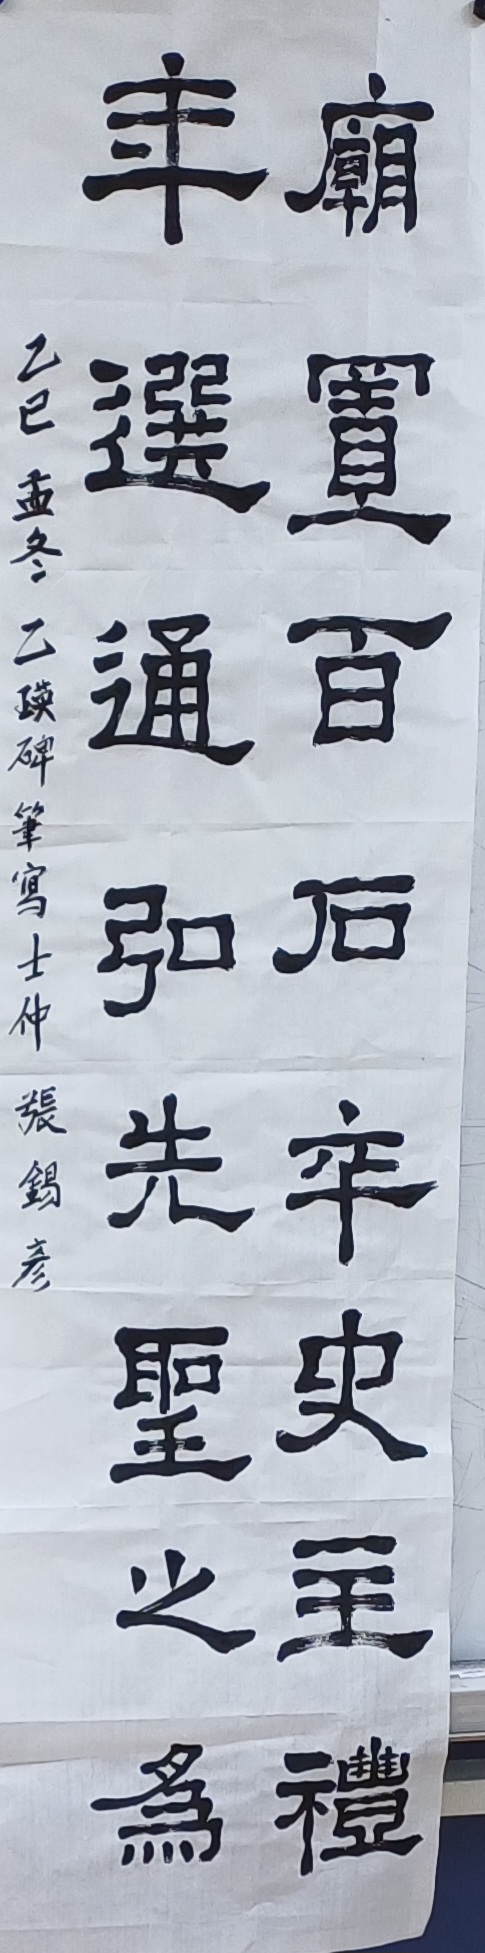 廟置百石卒史主禮
年選通弘先聖之為
乙巳孟冬乙瑛碑筆寫士仲張錫彥